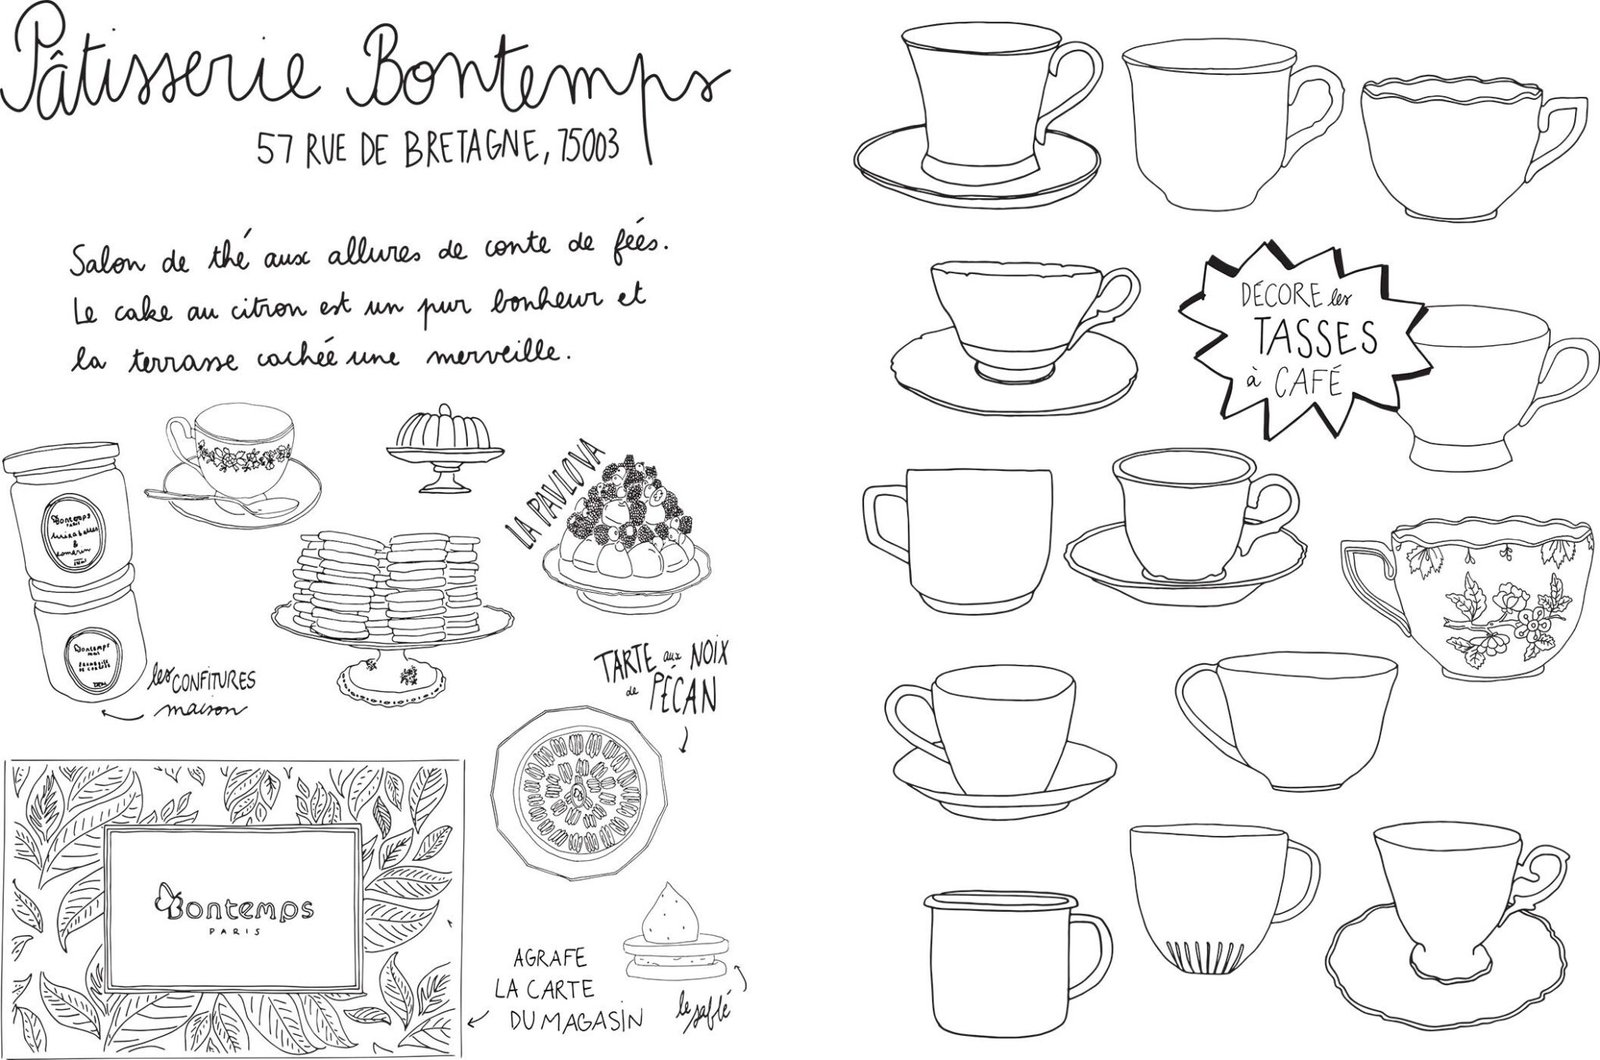 Pâtisserie Bontemps
57 RUE DE BRETAGNE, 75003
Salon de thé aux allures de conte de fées.
Le cake au citron est un pur bonheur et
la terrasse cachée une merveille.
LA PAVLOVA
Bontemps
Paris
&
Bontemps
les CONFITURES
maison
TARTE aux NOIX
de PÉCAN
Bontemps
PARIS
AGRAFE
LA CARTE
DU MAGASIN
le sablé
DÉCORE les
TASSES
à CAFÉ